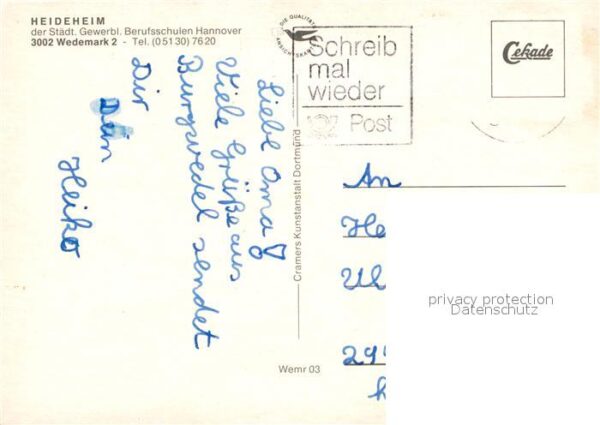 HEIDEHEIM
der Städt. Gewerbl. Berufsschulen Hannover
3002 Wedemark 2 - Tel. (05130) 7620
Liebe Oma!
Viele Grüße aus
Burgwedel sendet
Dir
Dein
Heiko
Cramers Kunstanstalt Dortmund
Wemr 03
DIE QUALITÄTS
ANSICHTSKARTE
Schreib
mal
wieder
Post
Cekade
An
He
Ul
29
privacy protection
Datenschutz